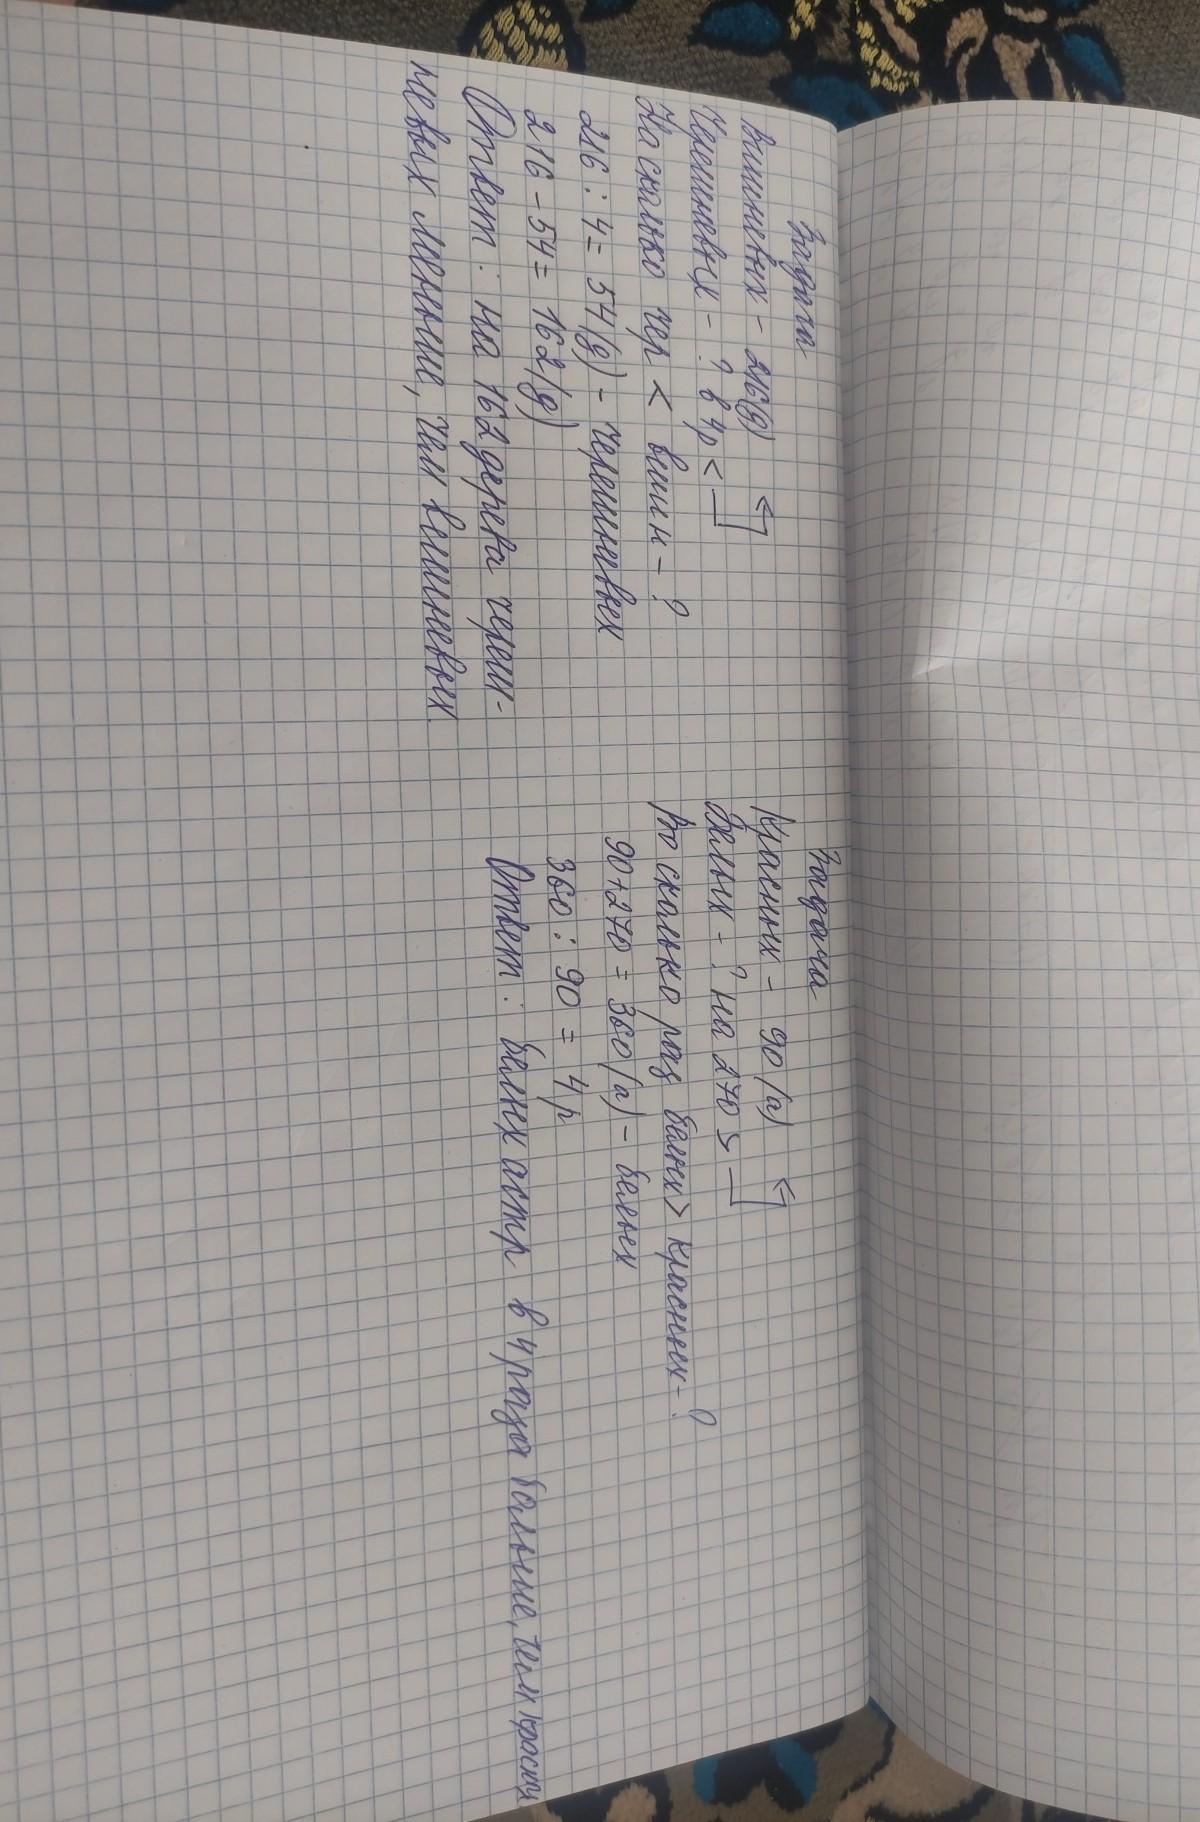 Задача
Вишневых - 216(д)
Черешневых - ? в 4р <
На сколько чер < вишн - ?
216 : 4 = 54(д) - черешневых
216 - 54 = 162(д)
Ответ: на 162 дерева череш-
невых меньше, чем вишневых.
Задача
Красных - 90 (а)
Белых - ? на 270 >
Во сколько раз белых > красных - ?
90+270 = 360 (а) - белых
360 : 90 = 4 р
Ответ: белых астр в 4 раза больше, чем красных